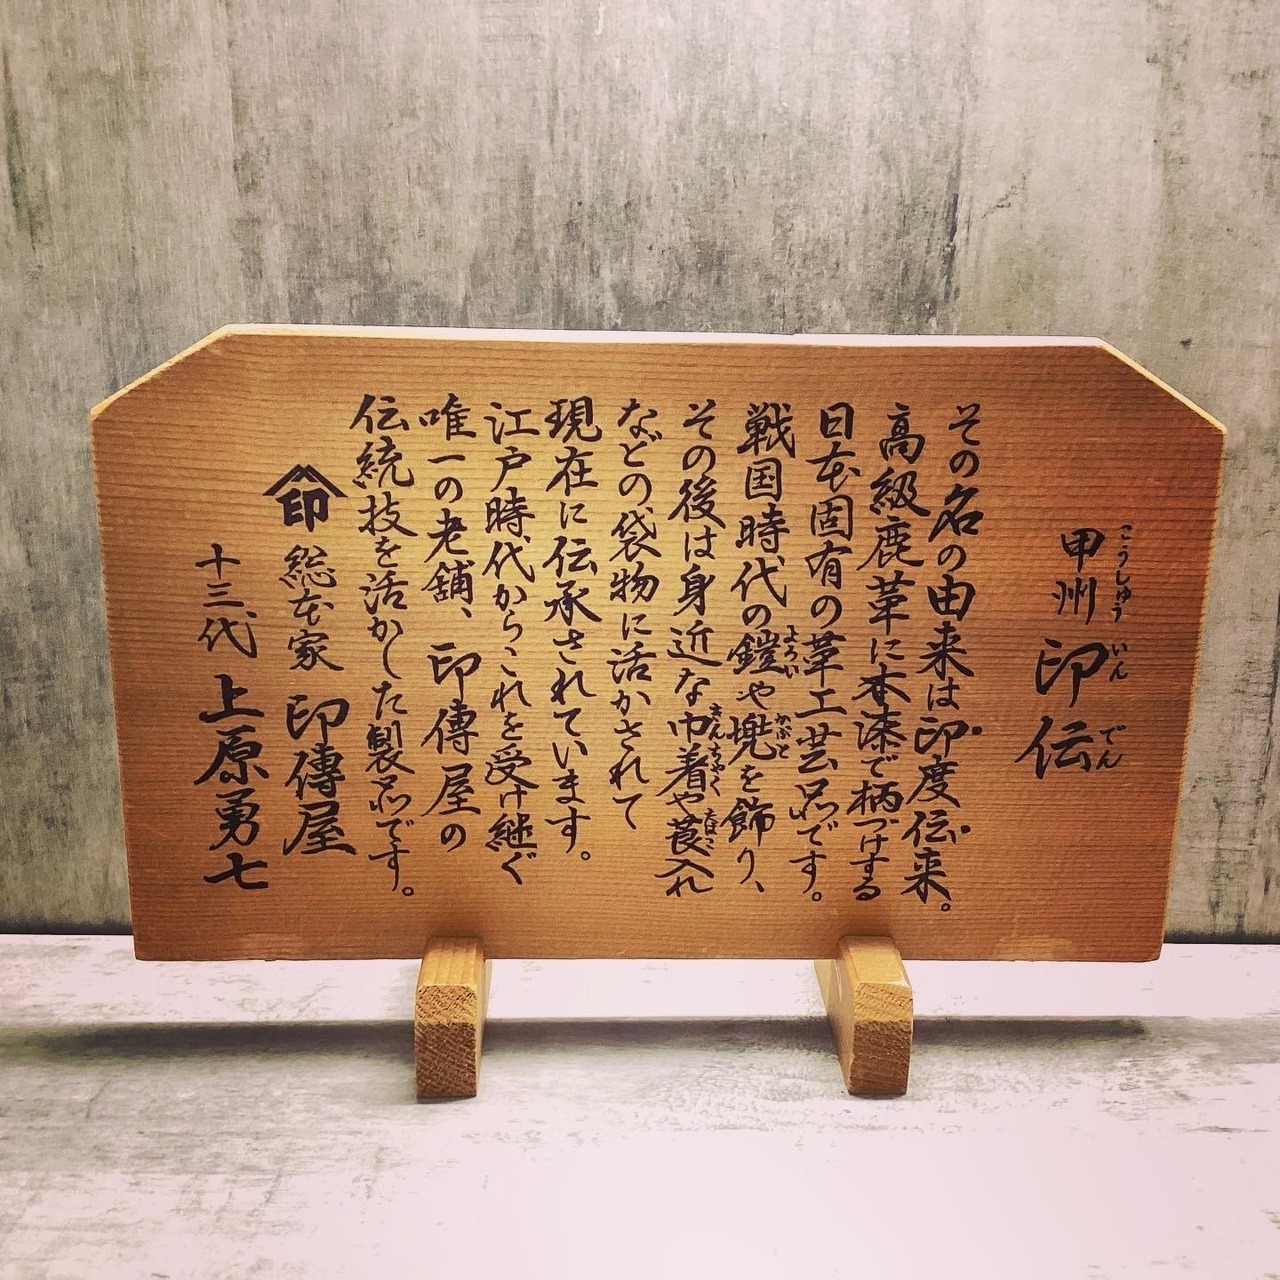 甲州印伝
こうしゅういんでん
その名の由来は印度伝来。
高級鹿革に本漆で柄づけする
日本固有の革工芸品です。
戦国時代の鎧や兜を飾り、
よろい
かぶと
その後は身近な巾着や莨入れ
きんちゃく
たばこ
などの袋物に活かされて
現在に伝承されています。
江戸時代からこれを受け継ぐ
唯一の老舗、印傳屋の
伝統技を活かした製品です。
印 総本家 印傳屋
十三代 上原勇七